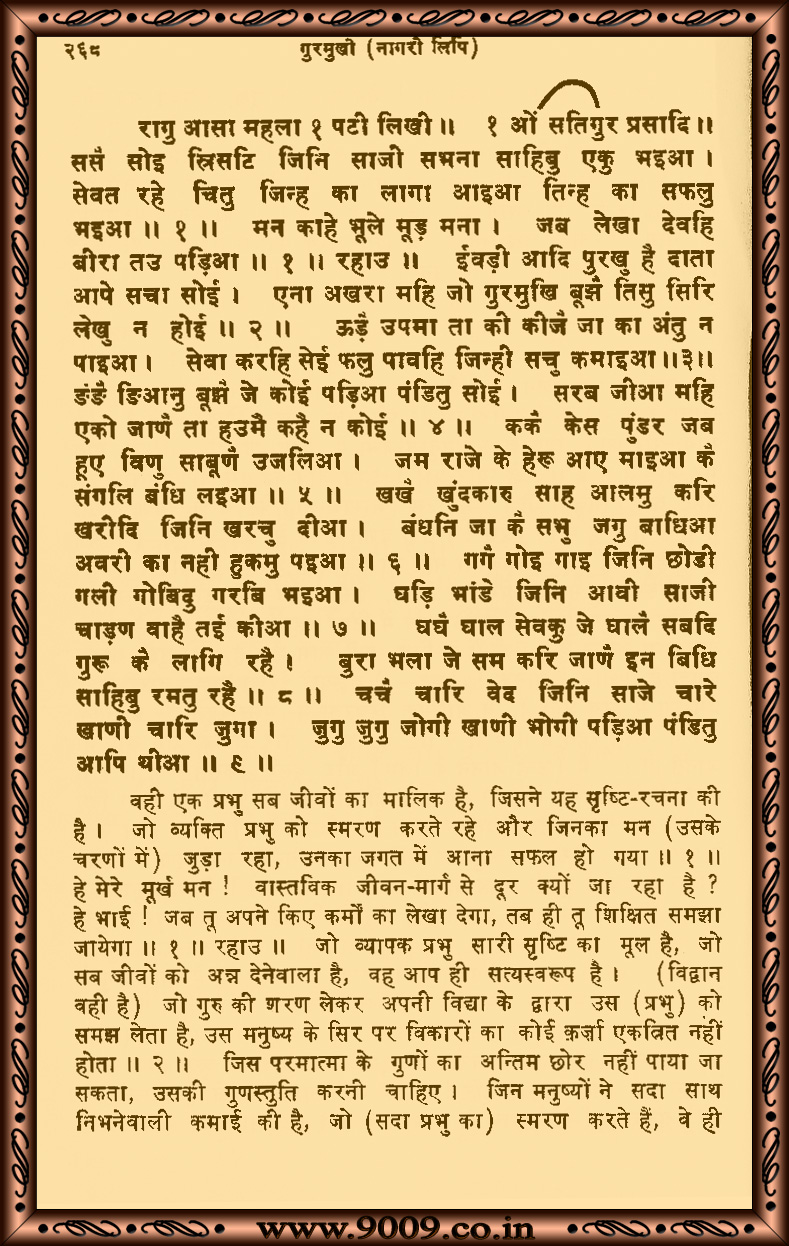 २६८ गुरमुखी (नागरी लिपि)
रागु आसा महला १ पटी लिखी ॥ १ ओं सतिगुर प्रसादि ॥
ससै सोइ स्रिसटि जिनि साजी सभना साहिबु एकु भइआ ।
सेवत रहे चितु जिन्ह का लागा आइआ तिन्ह का सफलु
भइआ ॥ १ ॥ मन काहे भूले मूड़ मना । जब लेखा देवहि
बीरा तउ पड़िआ ॥ १ ॥ रहाउ ॥ ईवड़ी आदि पुरखु है दाता
आपे सचा सोई । एना अखरा महि जो गुरमुखि बूझै तिसु सिरि
लेखु न होई ॥ २ ॥ ऊड़ै उपमा ता की कीजै जा का अंतु न
पाइआ । सेवा करहि सेई फलु पावहि जिन्ही सचु कमाइआ ॥३॥
ङंङै ङिआनु बूझै जे कोई पड़िआ पंडितु सोई । सरब जीआ महि
एको जाणै ता हउमै कहै न कोई ॥ ४ ॥ ककै केस पुंडर जब
हूए विणु साबूणै उजलिआ । जम राजे के हेरू आए माइआ कै
संगलि बंधि लइआ ॥ ५ ॥ खखै खुंदकारु साह आलमु करि
खरीदि जिनि खरचु दीआ । बंधनि जा कै सभु जगु बाधिआ
अवरी का नही हुकमु पइआ ॥ ६ ॥ गगै गोइ गाइ जिनि छोडी
गली गोबिदु गरबि भइआ । घड़ि भांडे जिनि आवी साजी
चाड़ण वाहै तई कीआ ॥ ७ ॥ घघै घाल सेवकु जे घालै सबदि
गुरू कै लागि रहै । बुरा भला जे सम करि जाणै इन बिधि
साहिबु रमतु रहै ॥ ८ ॥ चचै चारि वेद जिनि साजे चारे
खाणी चारि जुगा । जुगु जुगु जोगी खाणी भोगी पड़िआ पंडितु
आपि थीआ ॥ ९ ॥
वही एक प्रभु सब जीवों का मालिक है, जिसने यह सृष्टि-रचना की
है । जो व्यक्ति प्रभु को स्मरण करते रहे और जिनका मन (उसके
चरणों में) जुड़ा रहा, उनका जगत में आना सफल हो गया ॥ १ ॥
हे मेरे मूर्ख मन ! वास्तविक जीवन-मार्ग से दूर क्यों जा रहा है ?
हे भाई ! जब तू अपने किए कर्मों का लेखा देगा, तब ही तू शिक्षित समझा
जायेगा ॥ १ ॥ रहाउ ॥ जो व्यापक प्रभु सारी सृष्टि का मूल है, जो
सब जीवों को अन्न देनेवाला है, वह आप ही सत्यस्वरूप है । (विद्वान
वही है) जो गुरु की शरण लेकर अपनी विद्या के द्वारा उस (प्रभु) को
समझ लेता है, उस मनुष्य के सिर पर विकारों का कोई क़र्ज़ा एकत्रित नहीं
होता ॥ २ ॥ जिस परमात्मा के गुणों का अन्तिम छोर नहीं पाया जा
सकता, उसकी गुणस्तुति करनी चाहिए । जिन मनुष्यों ने सदा साथ
निभनेवाली कमाई की है, जो (सदा प्रभु का) स्मरण करते हैं, वे ही
www.9009.co.in